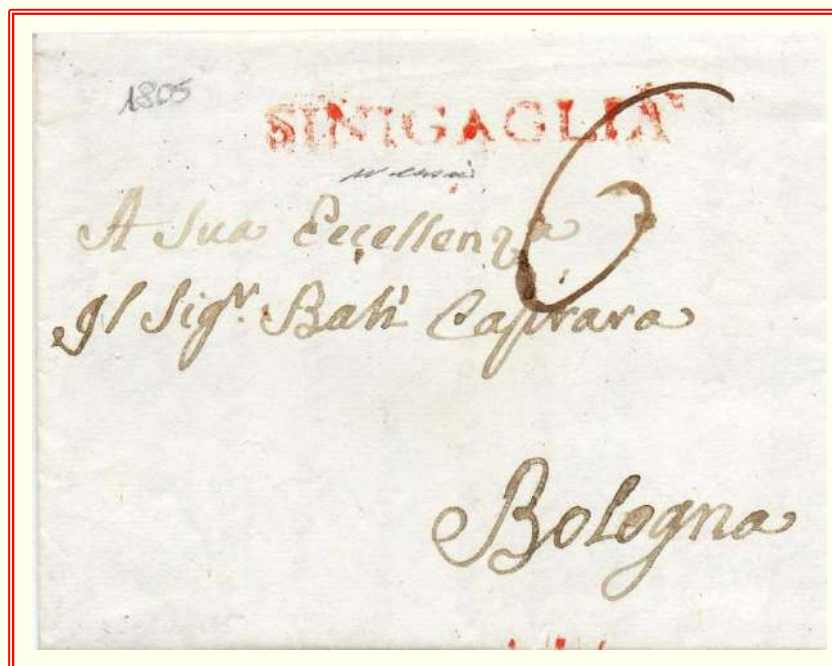 1805
SINIGAGLIA
6
A Sua Eccellenza
Il Sigr. Balì Caprara
Bologna